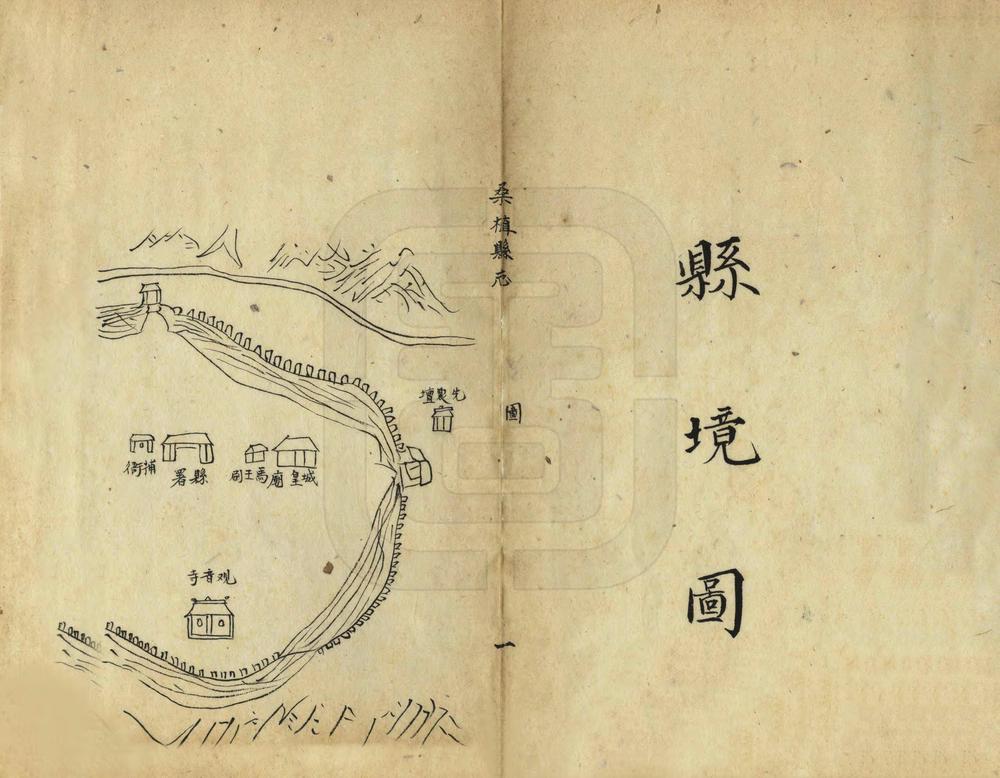 縣境圖
桑植縣志
圖
一
先農壇
城皇廟
馬王廟
縣署
捕衙
观音寺